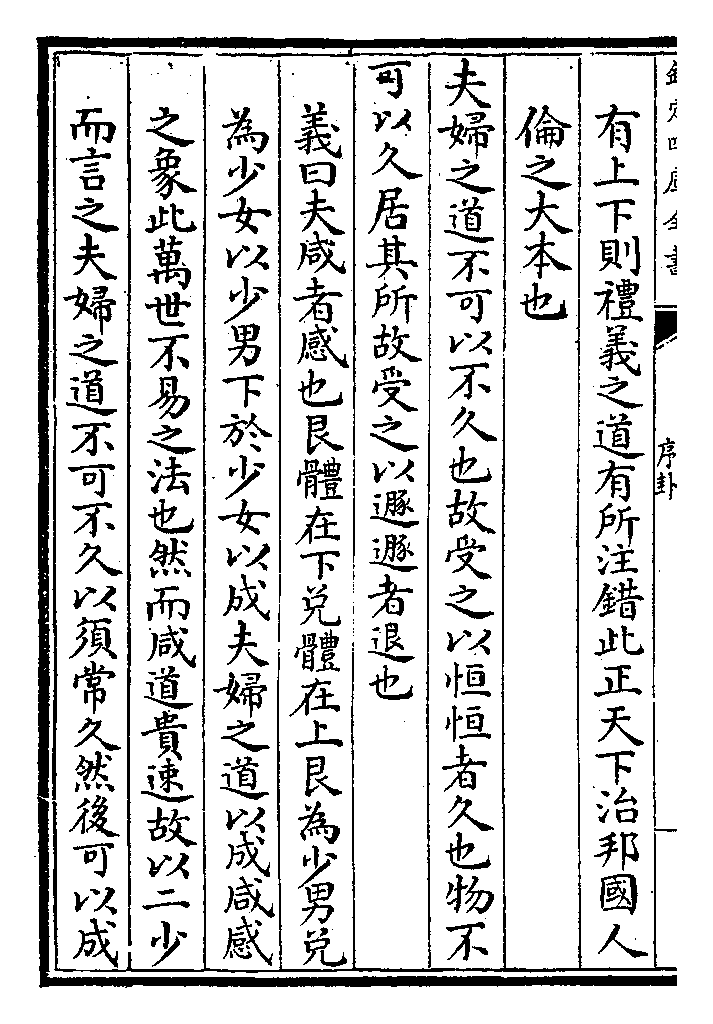 欽定四庫全書
序卦
有上下則禮義之道有所注錯此正天下治邦國人
倫之大本也
夫婦之道不可以不久也故受之以恒恒者久也物不
可以久居其所故受之以遯遯者退也
義曰夫咸者感也艮體在下兑體在上艮為少男兑
為少女以少男下於少女以成夫婦之道以成咸感
之象此萬世不易之法也然而咸道貴速故以二少
而言之夫婦之道不可不久以須常久然後可以成